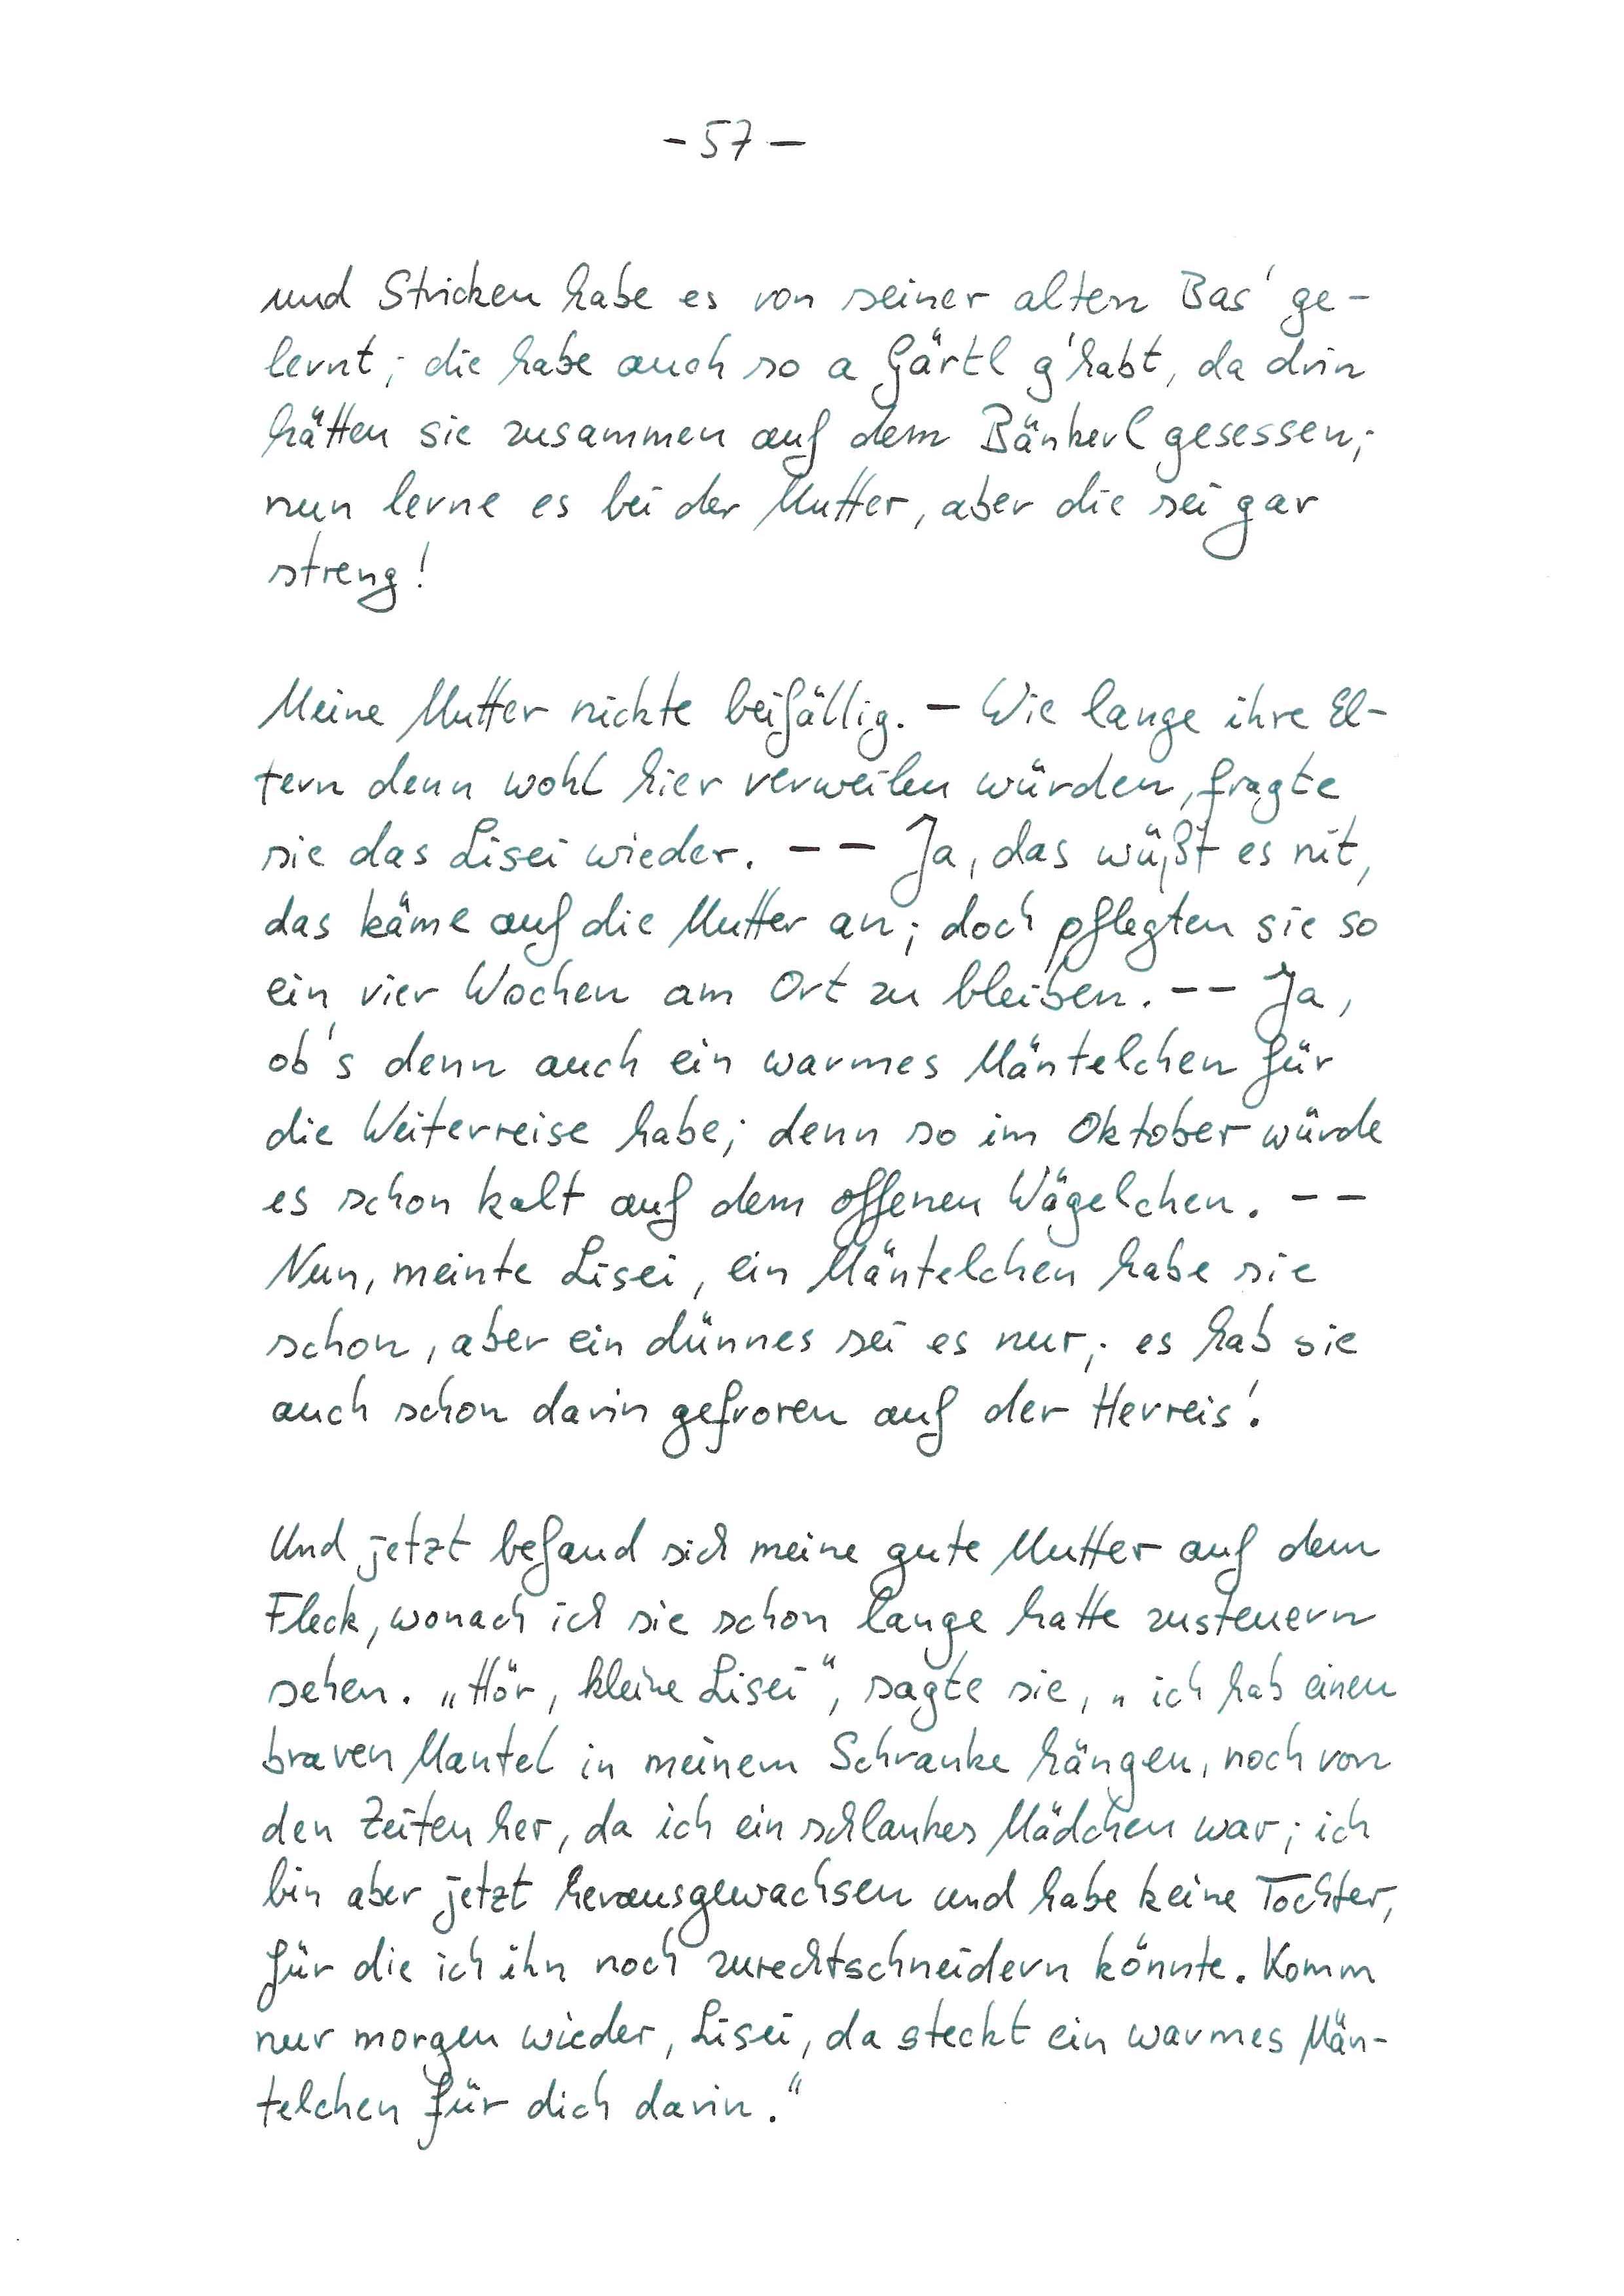 - 57 -
und Stricken habe es von seiner alten Bas' ge-
lernt; die habe auch so a Gärtl g'habt, da drin
hätten sie zusammen auf dem Bänkerl gesessen;
nun lerne es bei der Mutter, aber die sei gar
streng!
Meine Mutter nickte beifällig. – Wie lange ihre El-
tern denn wohl hier verweilen würden, fragte
sie das Lisei wieder. – – Ja, das wüßt' es nit,
das käme auf die Mutter an; doch pflegten sie so
ein vier Wochen am Ort zu bleiben. – – Ja,
ob's denn auch ein warmes Mäntelchen für
die Weiterreise habe; denn so im Oktober würde
es schon kalt auf dem offenen Wägelchen. – –
Nun, meinte Lisei, ein Mäntelchen habe sie
schon, aber ein dünnes sei es nur; es hab sie
auch schon darin gefroren auf der Herreis'.
Und jetzt befand sich meine gute Mutter auf dem
Fleck, wonach ich sie schon lange hatte zusteuern
sehen. „Hör, kleine Lisei“, sagte sie, „ich hab einen
braven Mantel in meinem Schranke hängen, noch von
den Zeiten her, da ich ein schlankes Mädchen war; ich
bin aber jetzt herausgewachsen und habe keine Tochter,
für die ich ihn noch zurechtschneidern könnte. Komm
nur morgen wieder, Lisei, da steckt ein warmes Män-
telchen für dich darin.“